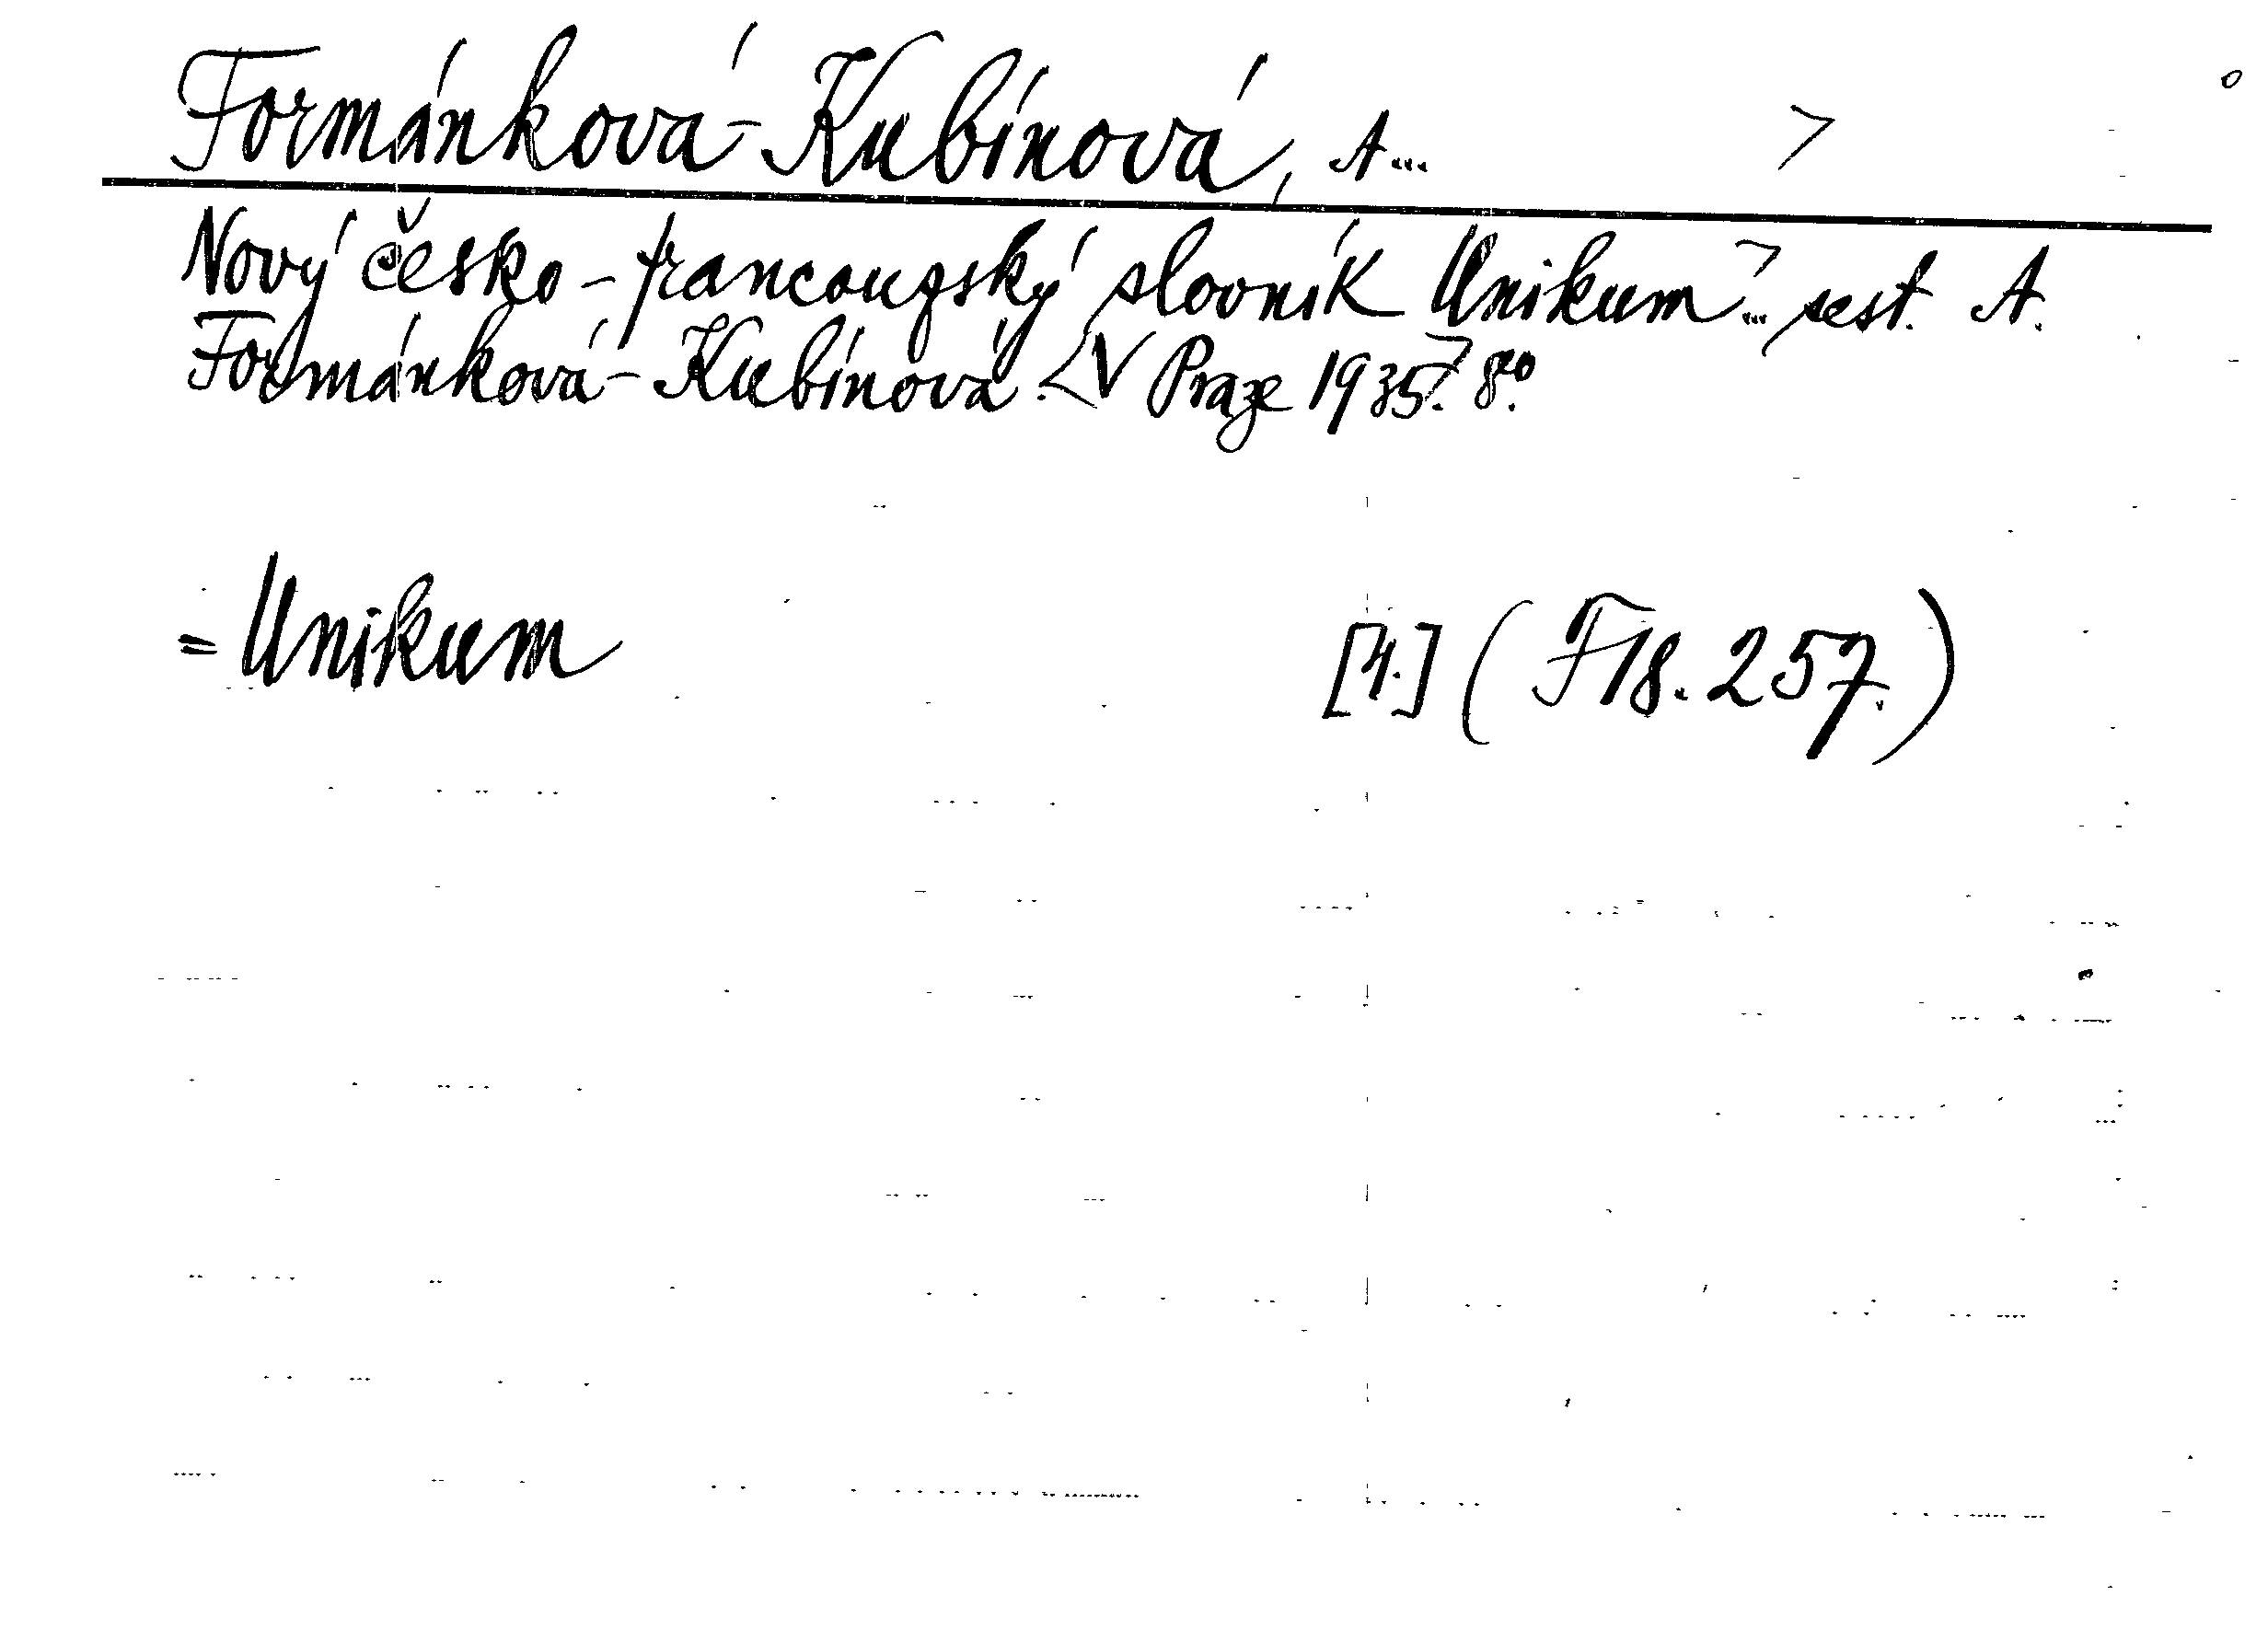 Formánková-Kubínová, A...
Nový česko-francouzský slovník Unikum... sest. A.
Formánková-Kubínová. V Praze 1935. 8°.
= Unikum [4.] (F 18. 257.)